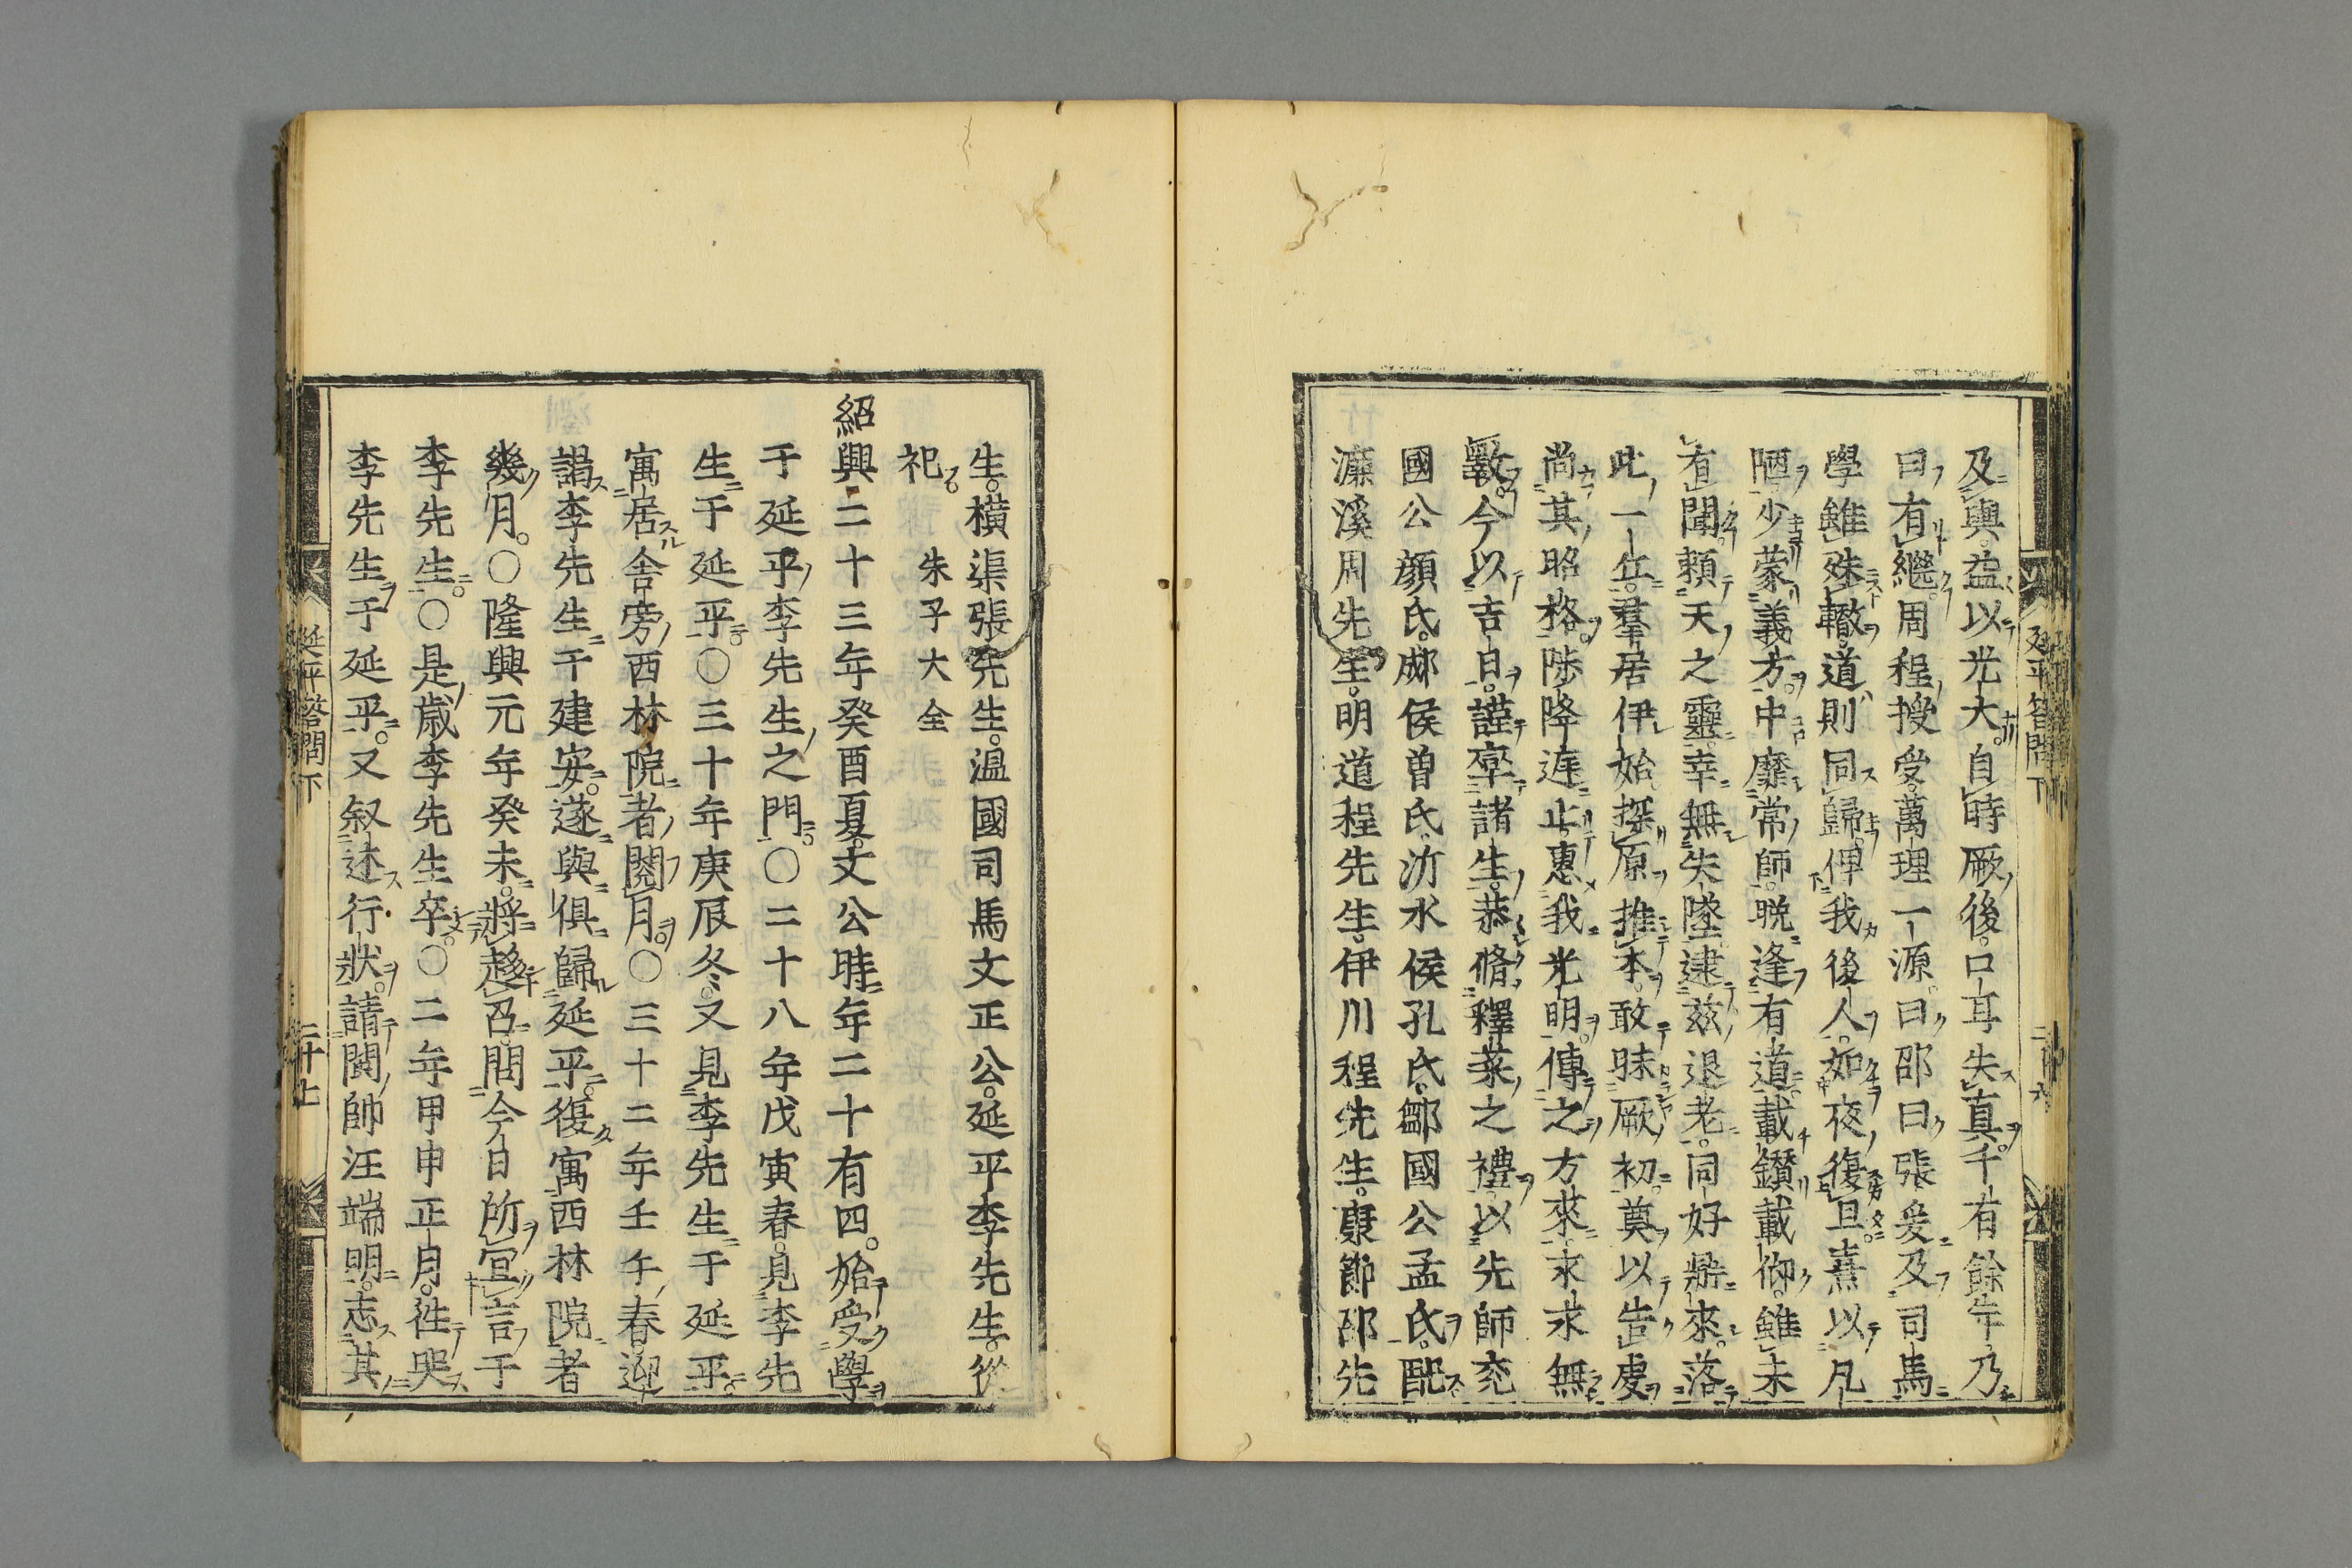 及輿益以光大自時厥後口耳失真千有餘年乃
曰有繼周程授受萬理一源曰邵曰張爰及司馬
學雖殊轍道則同歸俾我後人如夜復旦熹以凡
陋少蒙義方中靡常師晚逢有道載鑽載仰雖未
有聞賴天之靈幸無失墜逮茲退老同好鼎來落
此一丘羣居伊始探原推本敢昧厥初奠以告虔
尚其昭格陟降迋止惠我光明傳之方來永永無
斁今以吉日謹率諸生恭脩釋菜之禮以先師兖
國公顏氏郕侯曾氏沂水侯孔氏鄒國公孟氏配
濂溪周先生明道程先生伊川程先生康節邵先
生橫渠張先生溫國司馬文正公延平李先生從
祀 朱子大全
紹興二十三年癸酉夏文公時年二十有四始受學
于延平李先生之門〇二十八年戊寅春見李先
生于延平〇三十年庚辰冬又見李先生于延平
寓居舍旁西林院者閱月〇三十二年壬午春迎
謁李先生于建安遂與俱歸延平復寓西林院者
幾月〇隆興元年癸未將趨召問今日所宜言于
李先生〇是歲李先生卒〇二年甲申正月往哭
李先生于延平又叙述行狀請閩帥汪端明志其
延平答問下
延平答問下